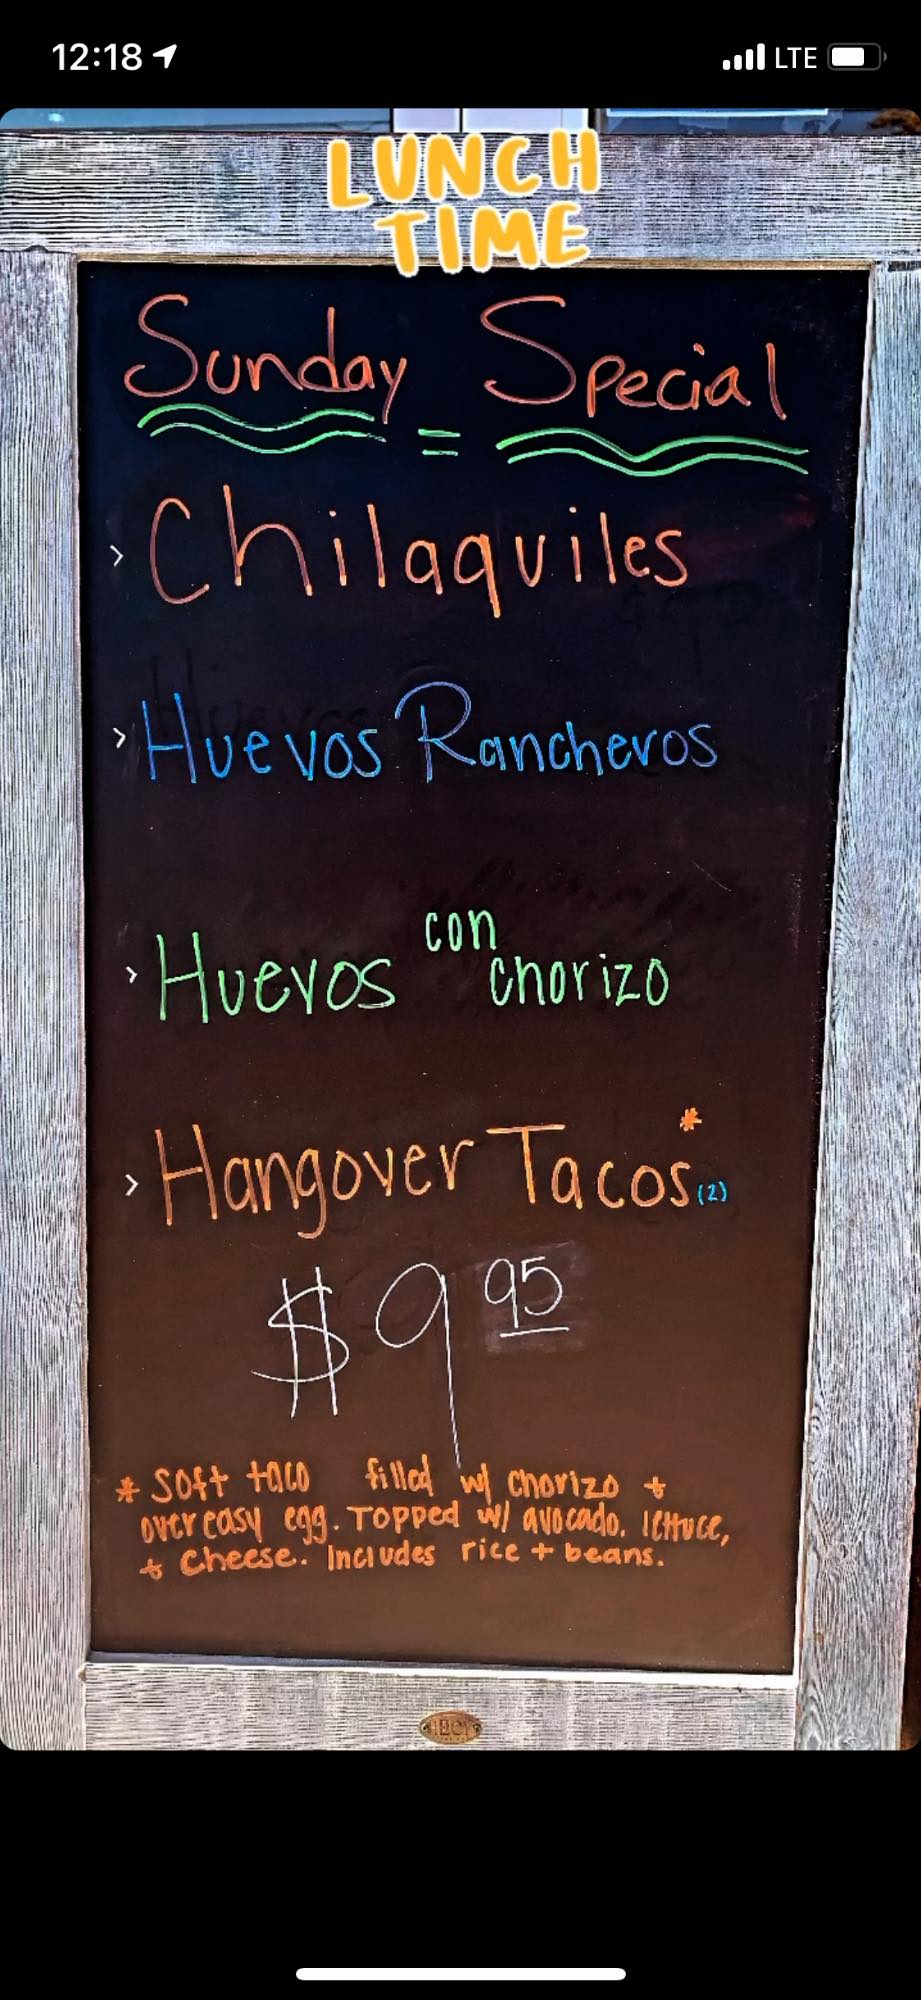 12:18
LTE
LUNCH
TIME
Sunday = Special
> Chilaquiles
> Huevos Rancheros
> Huevos con chorizo
> Hangover Tacos* (2)
$9 95
* Soft taco filled w/ chorizo +
over easy egg. Topped w/ avocado, lettuce,
+ cheese. Includes rice + beans.